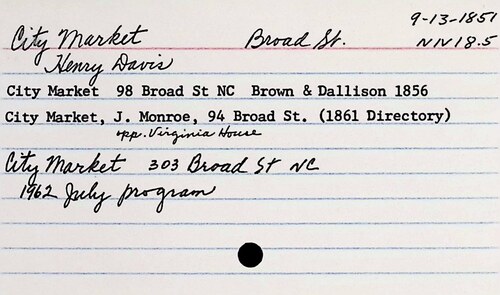 9-13-1851
City Market Broad St. NN18.5
Henry Davis
City Market 98 Broad St NC Brown & Dallison 1856
City Market, J. Monroe, 94 Broad St. (1861 Directory)
opp. Virginia House
City Market 303 Broad St NC
1962 July program